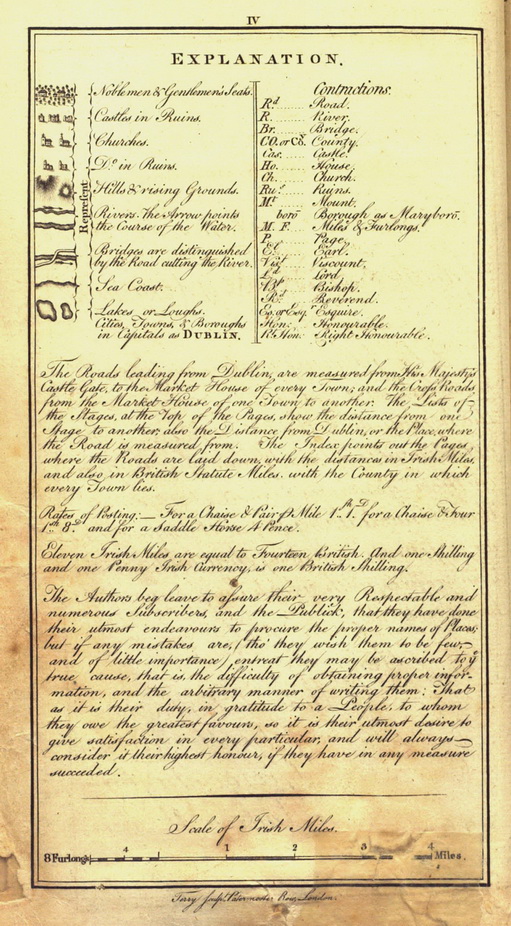 IV
EXPLANATION.
Represent
Noblemen & Gentlemen's Seats.
Castles in Ruins.
Churches.
D.o in Ruins.
Hills & rising Grounds.
Rivers. The Arrow points
the Course of the Water.
Bridges are distinguished
by the Road cutting the River.
Sea Coast.
Lakes or Loughs.
Cities, Towns, & Boroughs
in Capitals as DUBLIN.
Contractions.
R.d ...... Road.
R. ...... River.
Br. ...... Bridge.
CO. or Co. County.
Cas. ...... Castle.
Ho. ...... House.
Ch. ...... Church.
Ru.s ...... Ruins.
M.t ...... Mount.
boro ...... Borough as Maryboro.
M. F. ...... Miles & Furlongs.
P. ...... Page.
E.l ...... Earl.
Vis.t ...... Viscount.
L.d ...... Lord.
Bp ...... Bishop.
R.d ...... Reverend.
Es. or Esq.r Esquire.
Hon: ...... Honourable.
R.t Hon: ...... Right Honourable.
The Roads leading from Dublin, are measured from His Majesty's
Castle Gate, to the Market House of every Town; and the Cross Roads
from the Market House of one Town to another. The Lists of
the Stages, at the Top of the Pages, show the distance from one
Stage to another, also the Distance from Dublin, or the Place, where
the Road is measured from. The Index points out the Pages,
where the Roads are laid down, with the distances in Irish Miles,
and also in British Statute Miles, with the County in which
every Town lies.
Rates of Posting:— For a Chaise & Pair p.r Mile 1.sh 1.D for a Chaise & Four
1.sh 8.D and for a Saddle Horse 4 Pence.
Eleven Irish Miles are equal to Fourteen British. And one Shilling
and one Penny Irish Currency, is one British Shilling.
The Authors beg leave to assure their very Respectable and
numerous Subscribers, and the Publick, that they have done
their utmost endeavours to procure the proper names of Places;
but if any mistakes are, (tho' they wish them to be few,
and of little importance) entreat they may be ascribed to ye
true cause, that is, the difficulty of obtaining proper infor-
mation, and the arbitrary manner of writing them: That
as it is their duty, in gratitude to a People, to whom
they owe the greatest favours, so it is their utmost desire to
give satisfaction in every particular, and will always
consider it their highest honour, if they have in any measure
succeeded.
Scale of Irish Miles.
8 Furlongs 4 1 2 3 4 Miles.
Terry Sculp.t Paternoster Row, London.